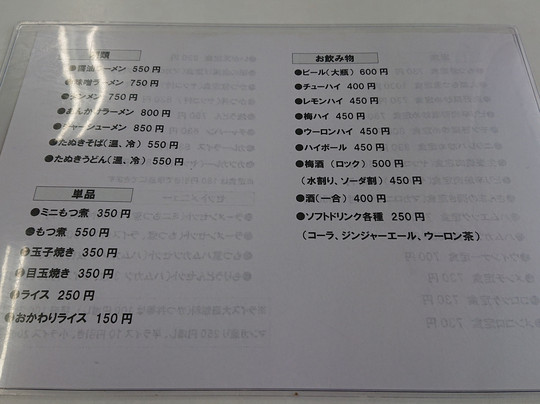 麺類
●醤油ラーメン 550円
●味噌ラーメン 750円
●タンメン 750円
●あんかけラーメン 800円
●チャーシューメン 850円
●たぬきそば(温、冷) 550円
●たぬきうどん(温、冷) 550円
単品
●ミニもつ煮 350円
●もつ煮 550円
●玉子焼き 350円
●目玉焼き 350円
●ライス 250円
●おかわりライス 150円
お飲み物
●ビール(大瓶) 600円
●チューハイ 400円
●レモンハイ 450円
●梅ハイ 450円
●ウーロンハイ 450円
●ハイボール 450円
●梅酒 (ロック) 500円
(水割り、ソーダ割) 450円
●酒(一合) 400円
●ソフトドリンク各種 250円
(コーラ、ジンジャーエール、ウーロン茶)